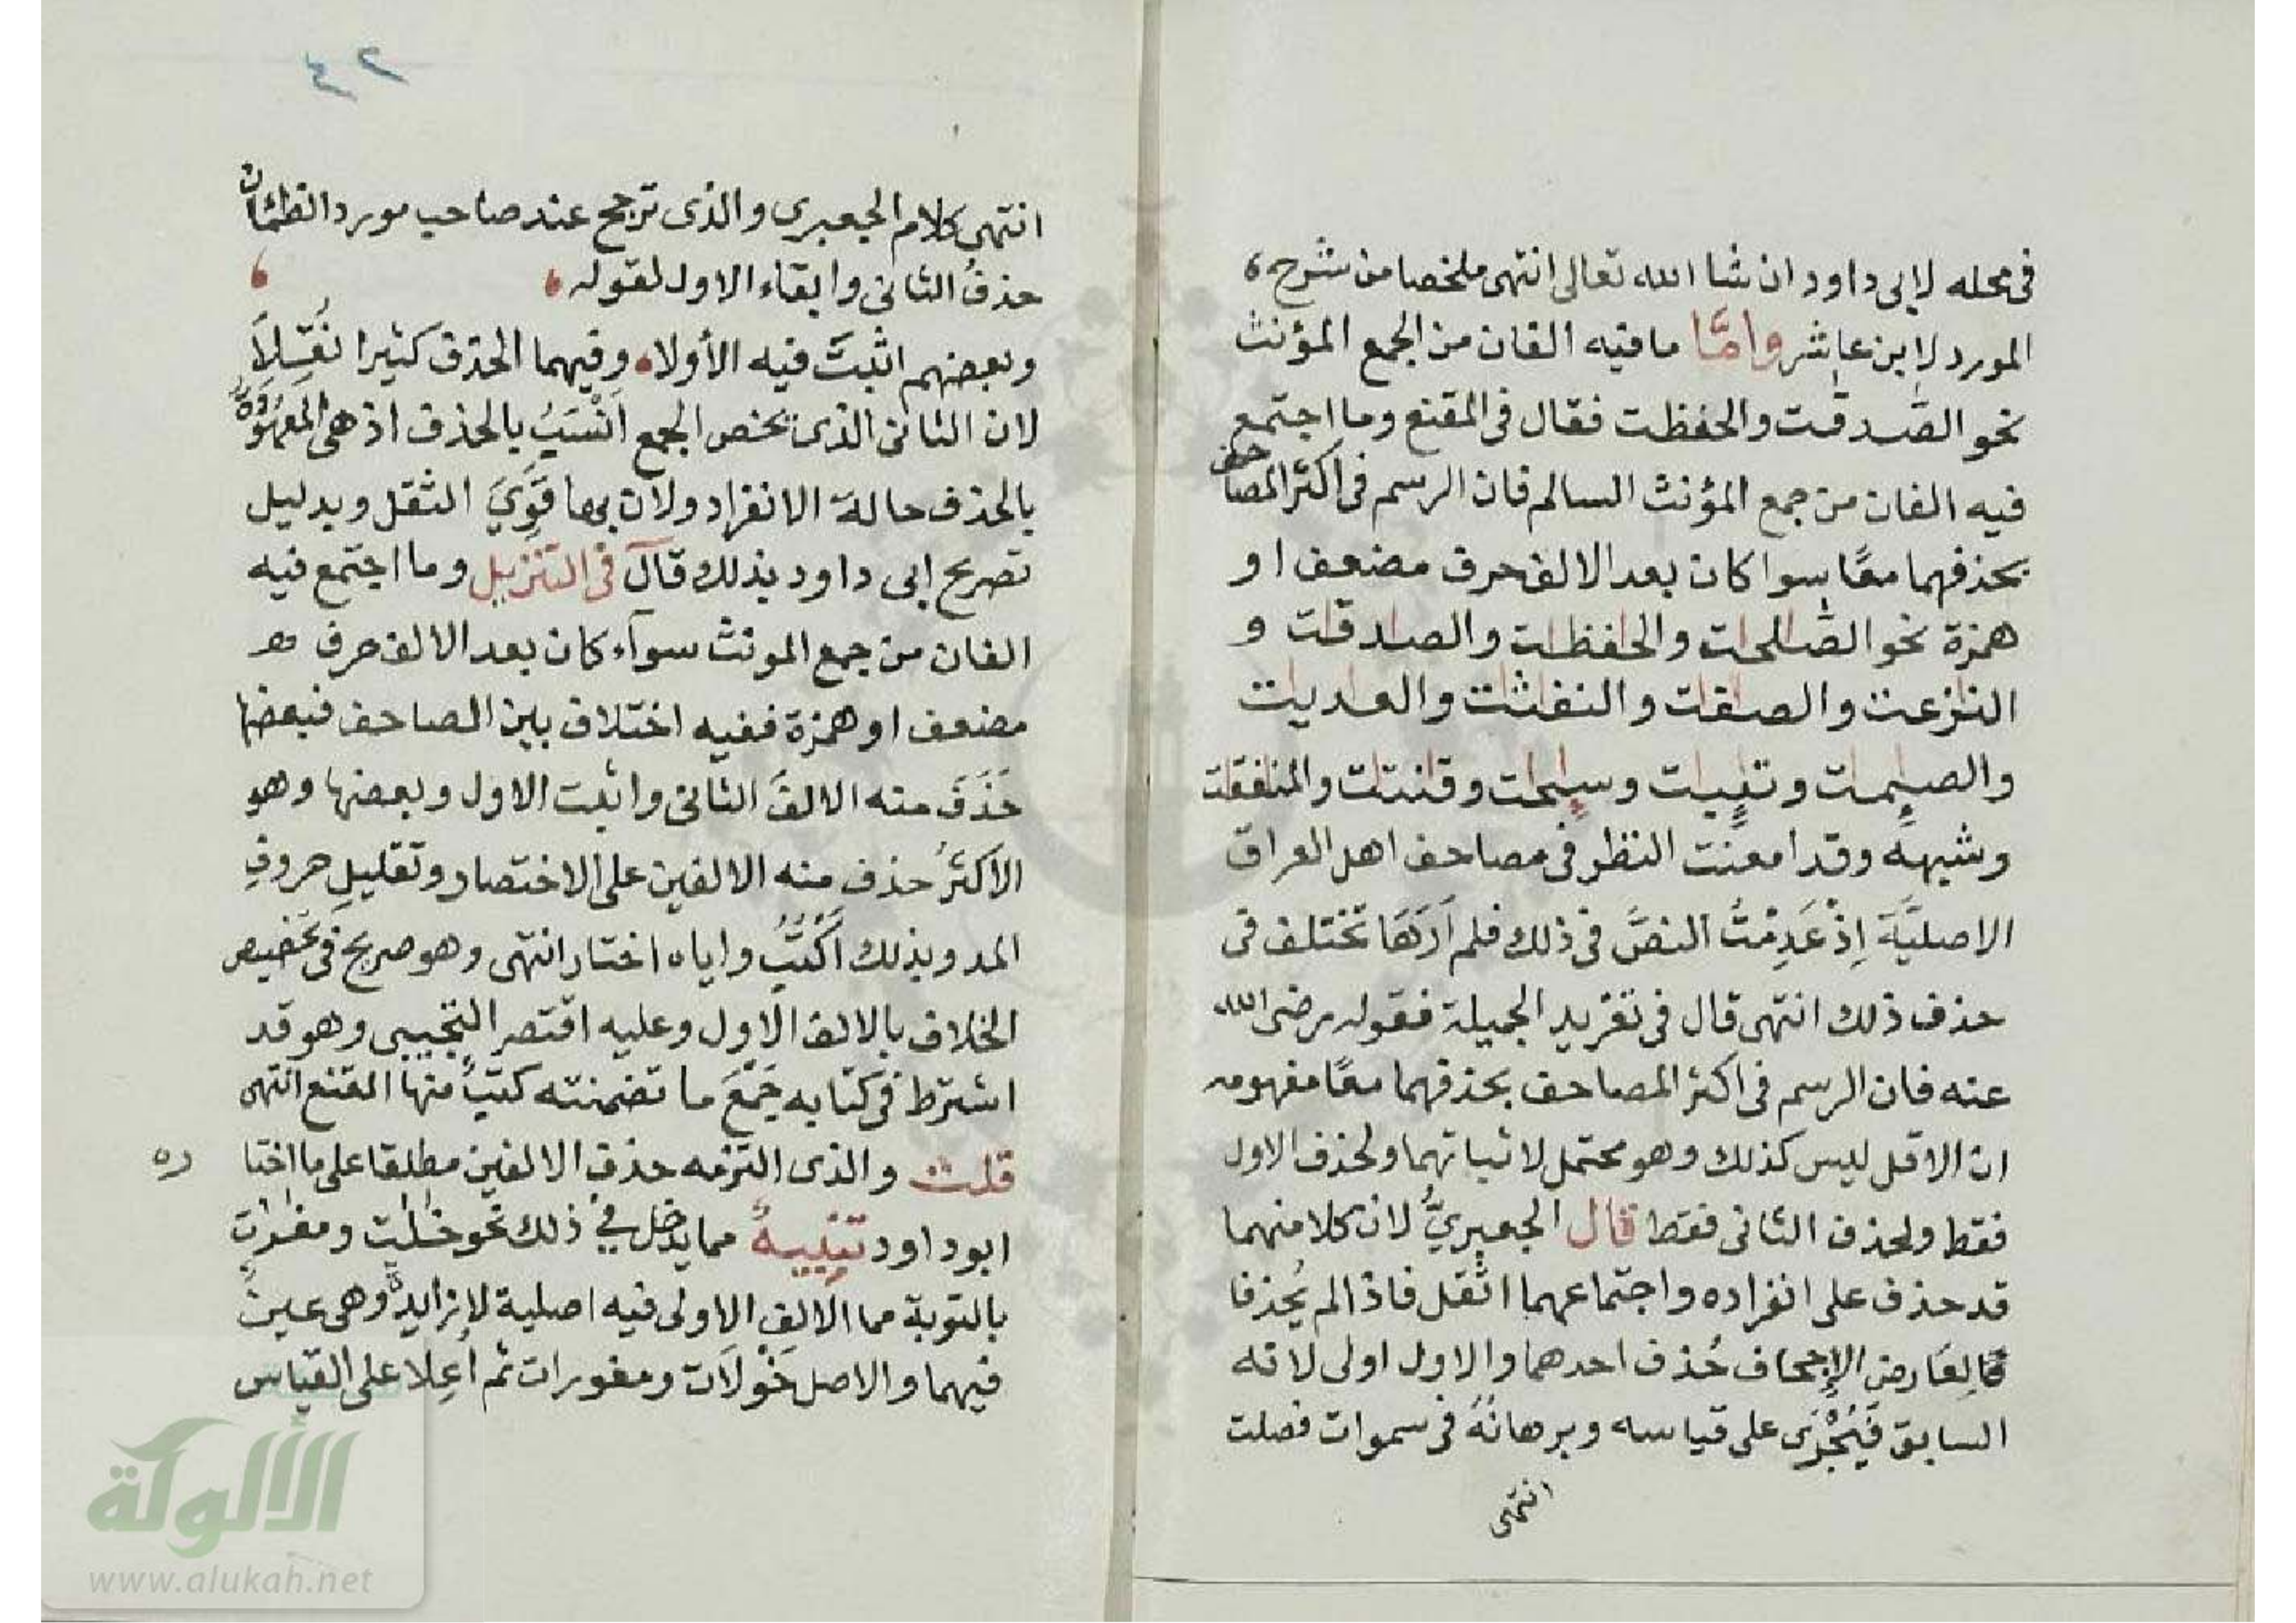 في محله لابي داود ان شا الله تعالى انتهى ملخصا من شرح
المورد لابن عاشر وامّا ما فيه الفان من الجمع المؤنث
نحو الصّدقٰت والحفظت فقال في المقنع وما اجتمع
فيه الفان من جمع المؤنث السالم فان الرسم في اكثر المصاحف
بحذفهما معًا سوا كان بعد الالف حرف مضعف او
همزة نحو الصّٰلحٰت والحٰفظٰت والصٰدقٰت و
النٰزعت والصٰفٰت والنفٰثٰت والعٰديٰت
والصٰىِٕمٰت وتٰىِٕبٰت وسٰىِٕحٰت وقٰنتٰت والمنٰفقٰت
وشبهه وقد امعنت النظر في مصاحف اهل العراق
الاصليَّة إِذْ عَدِمْتُ النصَّ في ذلك فلم اَرَهَا تختلف في
حذف ذلك انتهى قال في تفريد الجميلة فقوله رضى الله
عنه فان الرسم في اكثر المصاحف بحذفهما معًا مفهومه
ان الاقل ليس كذلك وهو محتمل لاثباتهما ولحذف الاول
فقط ولحذف الثاني فقط قال الجعبريُّ لان كلا منهما
قد حذف على انفراده واجتماعهما اثقل فاذا لم يُحذفا
لِعَارض الإِجحاف حُذف احدهما والاول اولى لانه
السابق فَيُجْرَى على قياسه وبرهانُهُ في سموات فصلت
انتهى
٤٢
انتهى كلام الجعبري والذى ترجح عند صاحب مورد الظمئان
حذفُ الثاني وابقاء الاول لقوله
وبعضهم اثبتَ فيه الأولا وفيهما الحذف كثيرا نُقِلَا
لان الثاني الذى يخص الجمع اَنْسَبُ بالحذف اذ هي المعهُودَة
بالحذف حالة الانفراد ولان بها قَوِيَ الثقل وبدليل
تصريح ابي داود بذلك قال في التنزيل وما اجتمع فيه
الفان من جمع المونث سوآء كان بعد الالف حرف
مضعف او همزة ففيه اختلاف بين المصاحف فبعضها
حَذَفَ منه الالفَ الثاني واثبت الاول وبعضها وهو
الاكثرُ حذف منه الالفين على الاختصار وتقليلِ حروفِ
المد وبذلك اَكْتُبُ واياه اختار انتهى وهو صريح في تخصيص
الخلاف بالالف الاول وعليه اقتصر التجيبي وهو قد
اشترط في كتابه جَمْعَ ما تضمنته كتبٌ منها المقنع انتهى
قلت والذى التزمه حذف الالفين مطلقا على ما اختاره
ابو داود تنبيهٌ مما يدخل في ذلك نحو خٰلٰت ومغٰرٰت
بالتوبة مما الالِف الاولى فيه اصلية لا زايدة وهي عينٌ
فيهما والاصل خَوْلَات ومغورات ثم اُعِلا على القياس
الألوكة
www.alukah.net